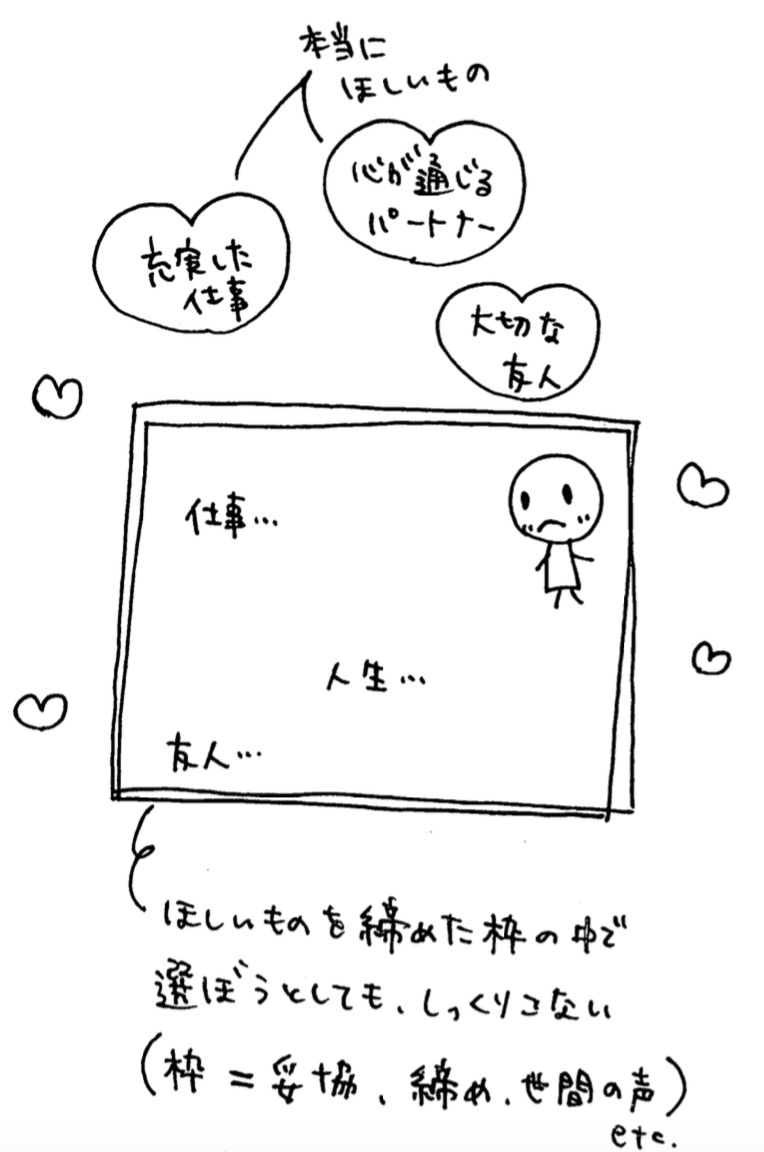 本当に
ほしいもの
心が通じる
パートナー
充実した
仕事
大切な
友人
仕事…
人生…
友人…
ほしいものを締めた枠の中で
選ぼうとしても、しっくりこない
(枠=妥協、締め、世間の声)
etc.